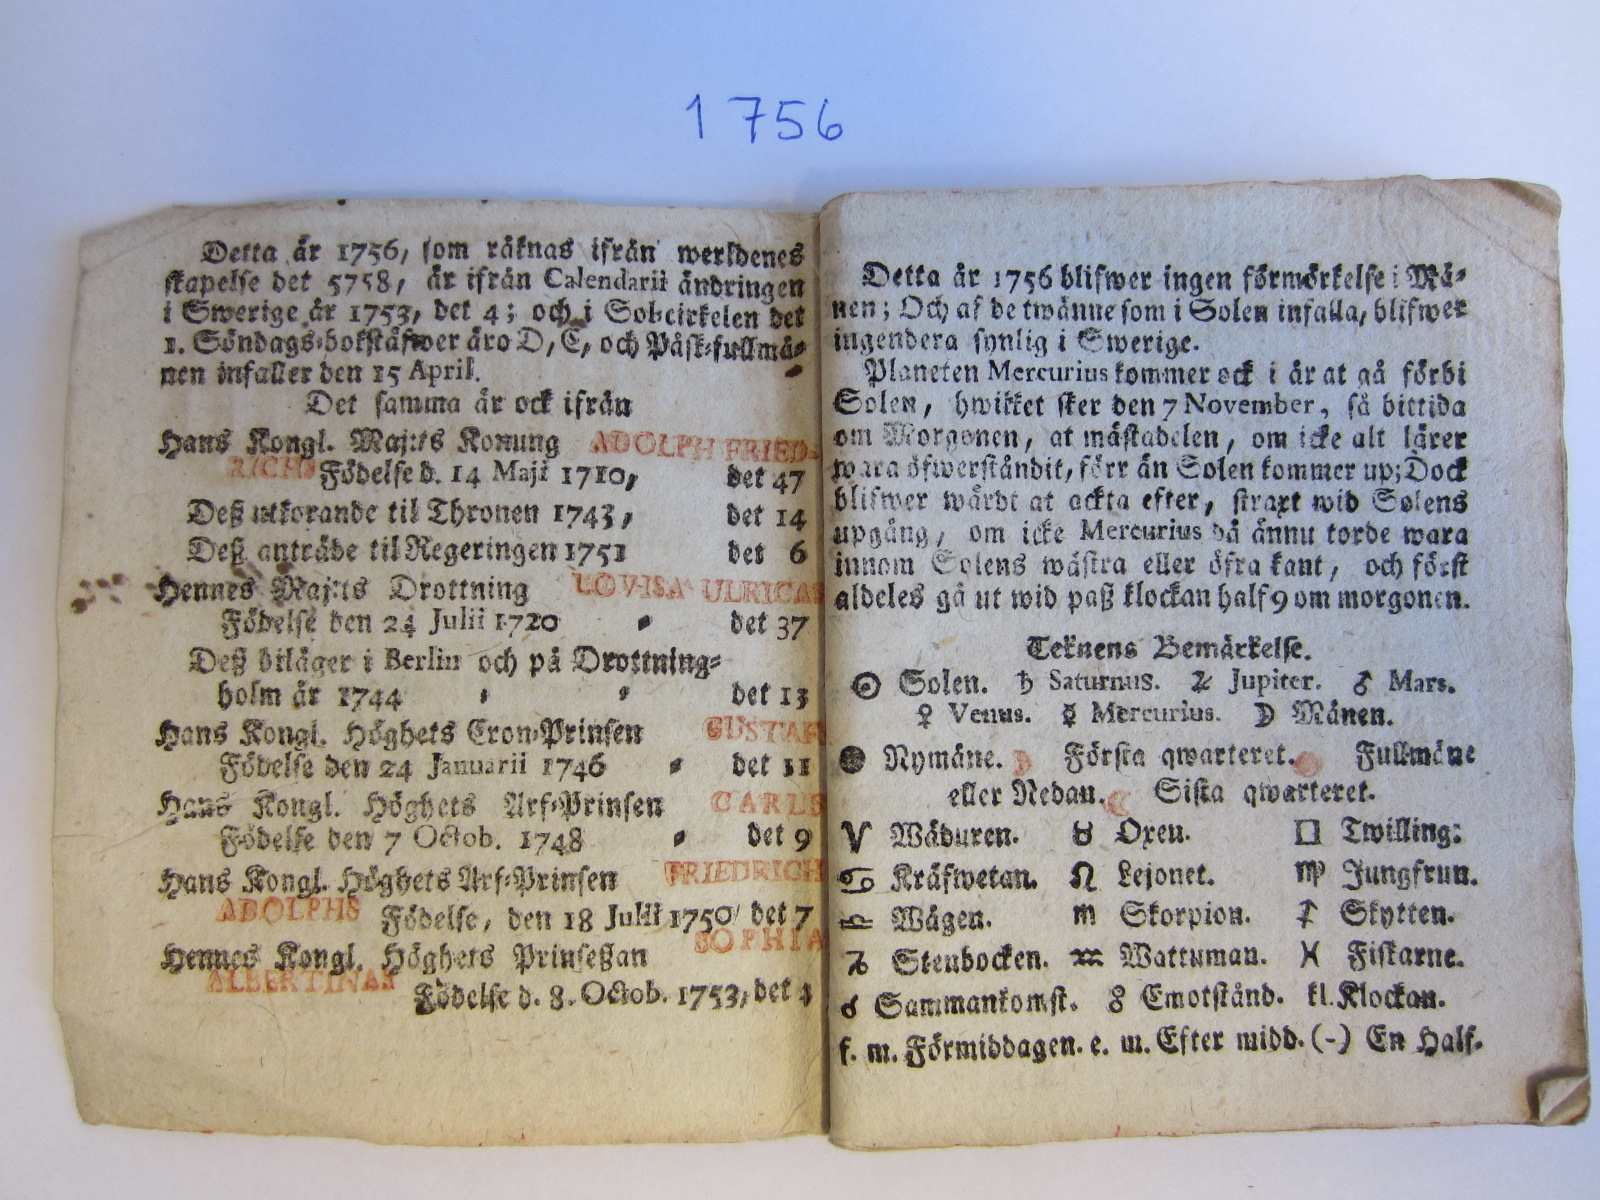 1756
Detta år 1756, som räknas ifrån werldenes
skapelse det 5758, är ifrån Calendarii ändringen
i Swerige år 1753, det 4; och i Solcirkelen det
1. Söndags-bokstäfwer äro D, C, och Påsk-fullmå-
nen infaller den 15 April.
Det samma år ock ifrån
Hans Kongl. Maj:ts Konung ADOLPH FRIED-
RICHS Födelse d. 14 Maji 1710, det 47
Deß utkorande til Thronen 1743, det 14
Deß anträde til Regeringen 1751 det 6
Hennes Maj:ts Drottning LOVISA ULRICAS
Födelse den 24 Julii 1720 det 37
Deß biläger i Berlin och på Drottning-
holm år 1744 det 13
Hans Kongl. Höghets Cron-Prinsen GUSTAFS
Födelse den 24 Januarii 1746 det 11
Hans Kongl. Höghets Arf-Prinsen CARLS
Födelse den 7 Octob. 1748 det 9
Hans Kongl. Höghets Arf-Prinsen FRIEDRICH
ADOLPHS Födelse, den 18 Julii 1750 det 7
Hennes Kongl. Höghets Prinseßan SOPHIA
ALBERTINAS Födelse d. 8. Octob. 1753, det 4
Detta år 1756 blifwer ingen förmörkelse i Må-
nen; Och af de twänne som i Solen infalla, blifwer
ingendera synlig i Swerige.
Planeten Mercurius kommer ock i år at gå förbi
Solen, hwilket sker den 7 November, så bittida
om Morgonen, at mästadelen, om icke alt lärer
wara öfwerståndit, förr än Solen kommer up; Dock
blifwer wärdt at ackta efter, straxt wid Solens
upgång, om icke Mercurius då ännu torde wara
innom Solens wästra eller öfra kant, och först
aldeles gå ut wid paß klockan half 9 om morgonen.
Teknens Bemärkelse.
☉ Solen. ♄ Saturnus. ♃ Jupiter. ♂ Mars.
♀ Venus. ☿ Mercurius. ☽ Månen.
● Nymåne. ☽ Första qwarteret. ● Fullmåne
eller Nedan. ☾ Sista qwarteret.
♈ Wäduren. ♉ Oxen. ♊ Twilling:
♋ Kräfwetan. ♌ Lejonet. ♍ Jungfrun.
♎ Wågen. ♏ Skorpion. ♐ Skytten.
♑ Stenbocken. ♒ Wattuman. ♓ Fiskarne.
☌ Sammankomst. ☍ Emotstånd. kl. Klockan.
f. m. Förmiddagen. e. m. Efter midd. (-) En Half.